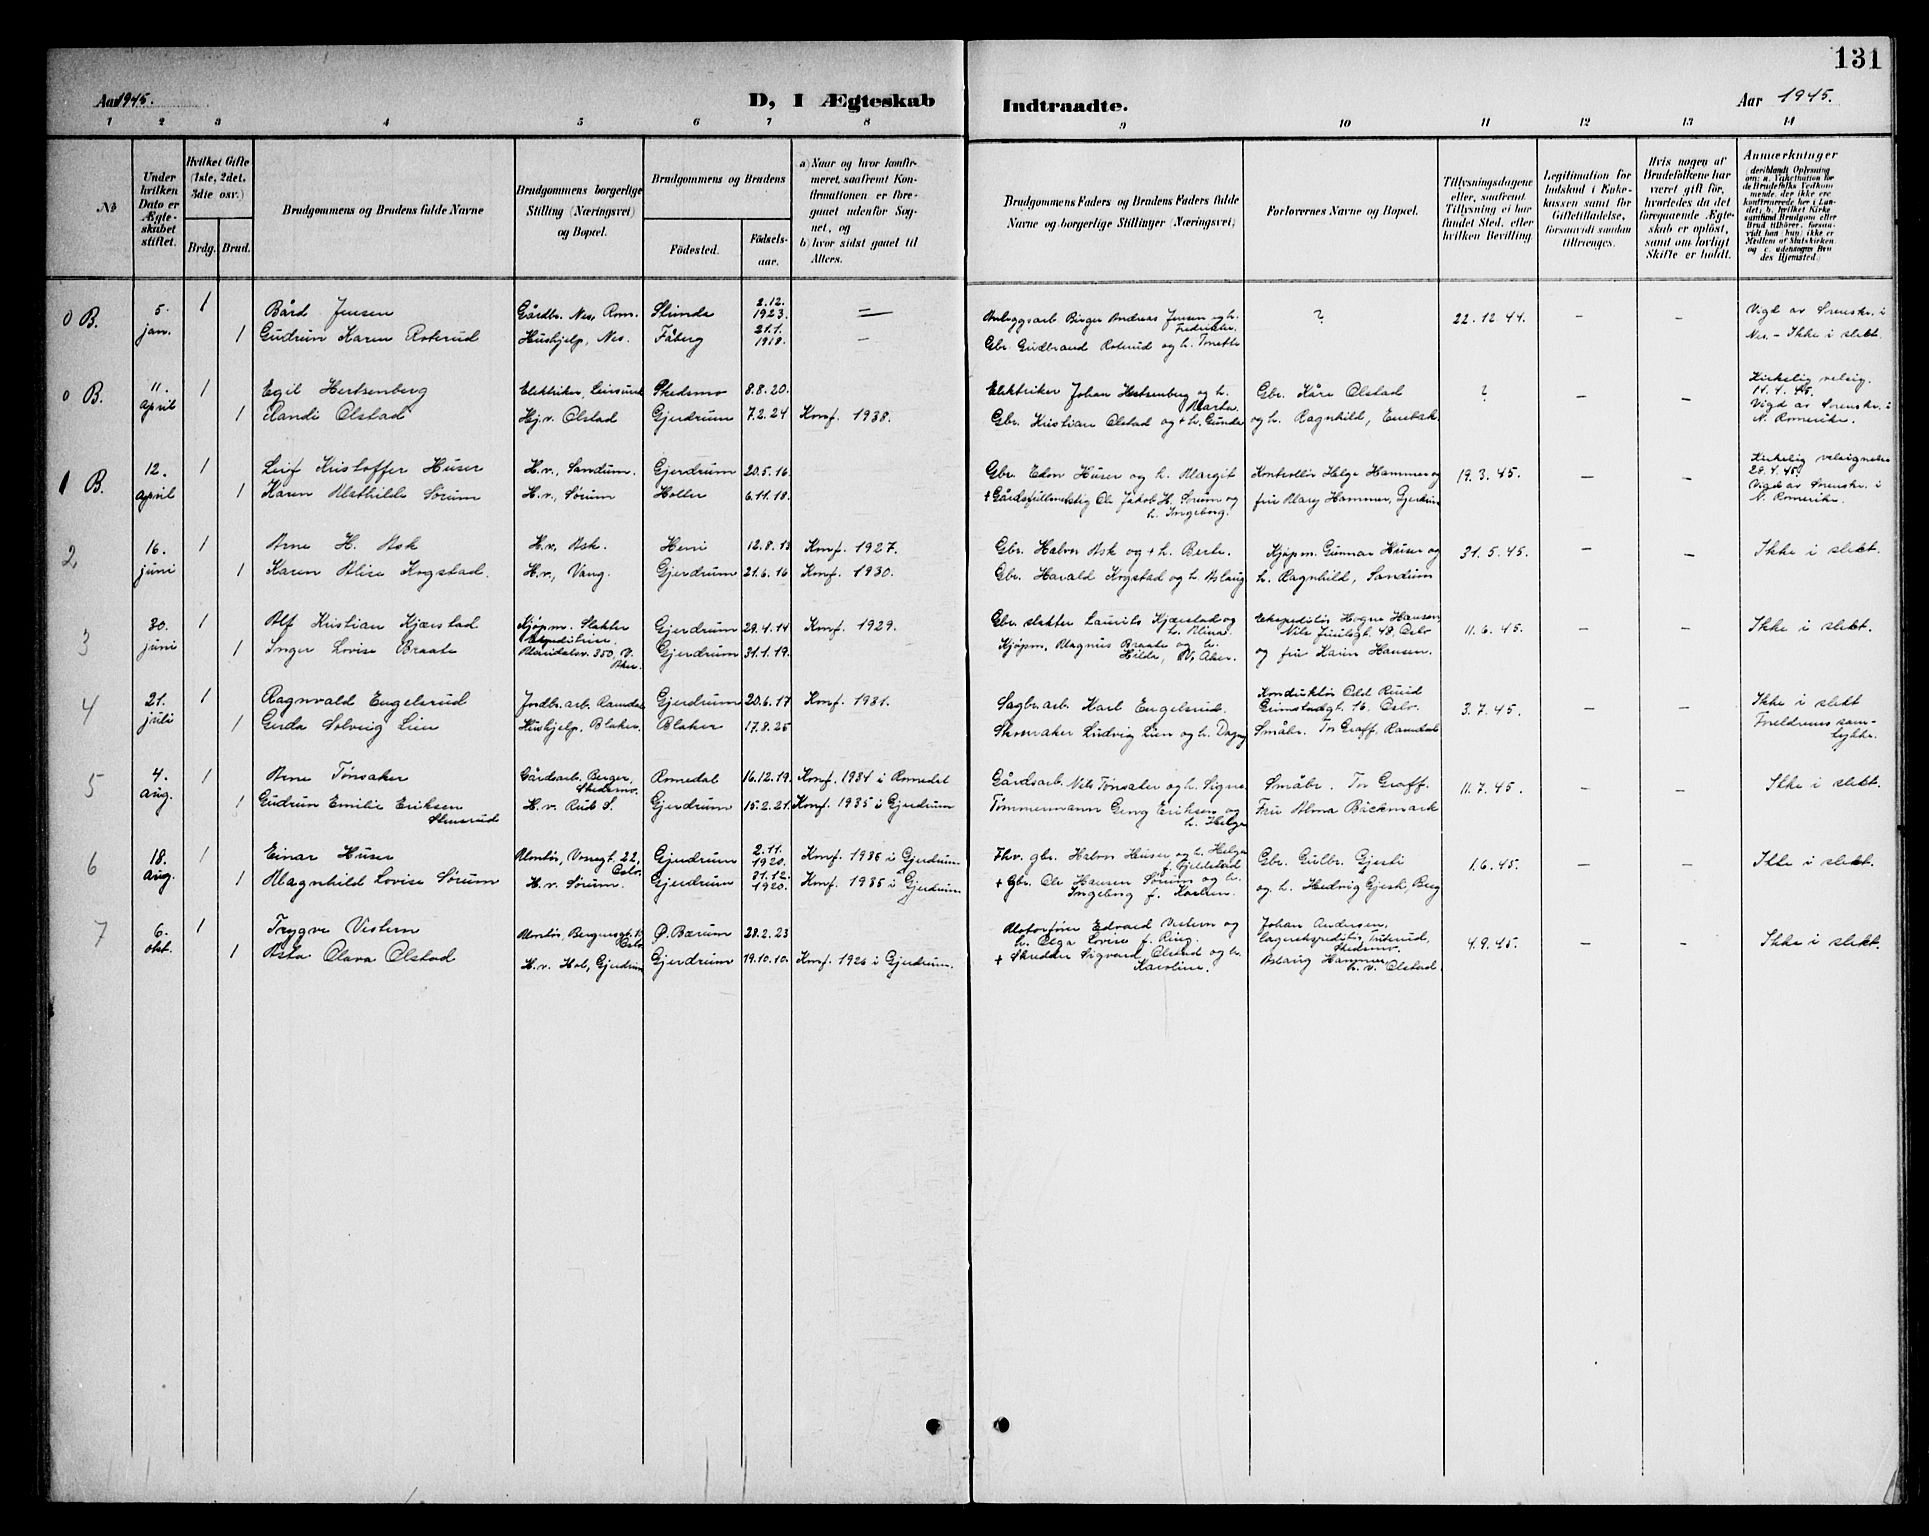 131
Aar 1945.
D, I Ægteskab
Indtraadte.
Aar 1945.
1 2 3 4 5 6 7 8 9 10 11 12 13 14
№
Under hvilken Dato er Ægteskabet stiftet.
Hvilket Gifte (1ste, 2det, 3die osv.)
Brdg. Brud.
Brudgommens og Brudens fulde Navne
Brudgommens borgerlige Stilling (Næringsvei) og Bopæl.
Brudgommens og Brudens
Födested.
Födsels-aar.
a) Naar og hvor konfirmeret, saafremt Konfirmationen er foregaaet udenfor Sognet, og
b) hvor sidst gaaet til Alters.
Brudgommens Faders og Brudens Faders fulde Navne og borgerlige Stillinger (Næringsvei)
Forlovernes Navne og Bopæl.
Tillysningsdagene eller, saafremt Tillysning ei har fundet Sted, efter hvilken Bevilling.
Legitimation for Indskud i Enkekassen samt for Giftetilladelse, forsaavidt saadan tiltrenges.
Hvis nogen af Brudefolkene har været gift för, hvorledes da det foregaaende Ægteskab er oplöst, samt om lovligt Skifte er holdt.
Anmærkninger
(deriblandt Oplysning om: a. Vakcination for de Brudefolks Vedkommende, der ikke ere konfirmerede her i Landet; b. hvilket Kirkesamfund Brudgom eller Brud tilhörer, forsaavidt han (hun) ikke er Medlem af Statskirken og c. udensogns Brudes Hjemsted.)
0 B. 5. jan. 1 Bård Jensen Gårdbr. Nes, Rom. 2.12. 1923. — Anleggsarb. Birger Andreas Jensen og h. ? 22.12.44. – – Vigd av Sorenskr. i
1 Gudrun Karen Roterud Hushjelp, Nes. Fåberg 21.1. 1918. — Gbr. Gudbrand Roterud og h. Nes. – Ikke i slekt.
0 B. 11. april 1 Egil Hertsenberg Elektriker, Leirsund Skedsmo 8.8.20. Elektriker Johan Hertsenberg og h. Marta. Gbr. Kåre Olstad ? – – Kirkelig velsig. 14.4.45.
1 Randi Olstad Hj.v. Olstad Gjerdrum 7.2.24 Konf. 1938. Gbr. Kristian Olstad og + h. Gunda og h. Ragnhild, Enebak Vigd av Sorenskr. i N. Romerike.
1 B. 12. april 1 Leif Kristoffer Huser H.v. Sandum. Gjerdrum 20.5.16 Gbr. Edon Huser og h. Margit Kontrollör Helge Hammer og 19.3.45. – – Kirkelig velsignelse 28.4.45.
1 Karen Mathilde Sørum H.v., Sørum Holter 6.11.18. + Gårdsfullmektig Ole Jakob H. Sørum og h. Ingeborg. fru Mary Hammer, Gjerdrum Vigd av Sorenskr. i N. Romerike.
2 16. juni 1 Arne H. Ask H.v. Ask. Heni 12.8.13 Konf. 1927. Gbr. Halvor Ask og + h. Berte. Kjøpm. Gunnar Huser og 31.5.45. – – Ikke i slekt.
1 Karen Alise Kogstad. H.v., Vang. Gjerdrum 21.6.16 Konf. 1930. Gbr. Harald Kogstad og h. Aslaug h. Ragnhild, Sandum
3 30. juni 1 Alf Kristian Kjærstad Kjøpm. Slakter Gjerdrum 29.4.14 Konf. 1929. Gbr. slakter Laurits Kjærstad og h. Alina. Ekspeditör Hogne Hansen Nils Juelsgt. 48, Oslo 11.6.45. – – Ikke i slekt.
1 Inger Lovise Braate 350, V. Aker. Gjerdrum 31.1.19. Kjøpm. Magnus Braate og h. Hilda, V. Aker. og fru Karin Hansen.
4 21. juli 1 Ragnvald Engelsrud Jordbr.arb. Ramdal Gjerdrum 20.6.17 Konf. 1931. Sagbr.arb. Karl Engelsrud. Konduktör Odd Ruud Grimstadgt. 16, Oslo. 3.7.45. – – Ikke i slekt
1 Gerda Solveig Lien Hushjelp, Blaker. Blaker 17.8.25 Skomaker Ludvig Lien og h. Dagny Småbr. Tor Graff, Ramdal Foreldrenes samtykke.
5 4. aug. 1 Arne Tønsaker Gårdsarb. Berger, Skedsmo. Romedal 16.12.19. Konf. 1934 i Romedal Gårdsarb. Nils Tønsaker og h. Signe Småbr. Tor Graff. 11.7.45. – – Ikke i slekt.
1 Gudrun Emilie Eriksen Stensrud H.v. Rud S. Gjerdrum 15.2.21. Konf. 1935 i Gjerdrum Tömmermann Georg Eriksen og h. Helga Fru Alma Bäckmark
6 18. aug. 1 Einar Huser Montör, Vossegt. 22, Oslo Gjerdrum 2.11. 1920. Konf. 1936 i Gjerdrum. Fhv. gbr. Halvor Huser og h. Helga f. Fjeldstad Gbr. Gulbr. Gjesti 1.6.45. – – Ikke i slekt.
1 Magnhild Lovise Sørum H.v. Sørum. Gjerdrum 31.12. 1920. Konf. 1935 i Gjerdrum. + Gbr. Ole Hansen Sørum og h. Ingeborg f. Karlsen. og h. Hedvig Gjesti, Berg
7 6. okt. 1 Trygve Vestern Montör, Bergensgt. Oslo Ø. Bærum 28.2.23 Motorförer Edvard Vestern og h. Olga Lovise f. Ring. Johan Andersen, Lagerekspeditör, Skedsmo. 4.9.45. – – Ikke i slekt.
1 Asta Olava Olstad H.v. Hol, Gjerdrum Gjerdrum 19.10.10. Konf. 1926 i Gjerdrum. + Skredder Sigvard Olstad og h. Karoline. Aslaug Hammer, h. v. Olstad.